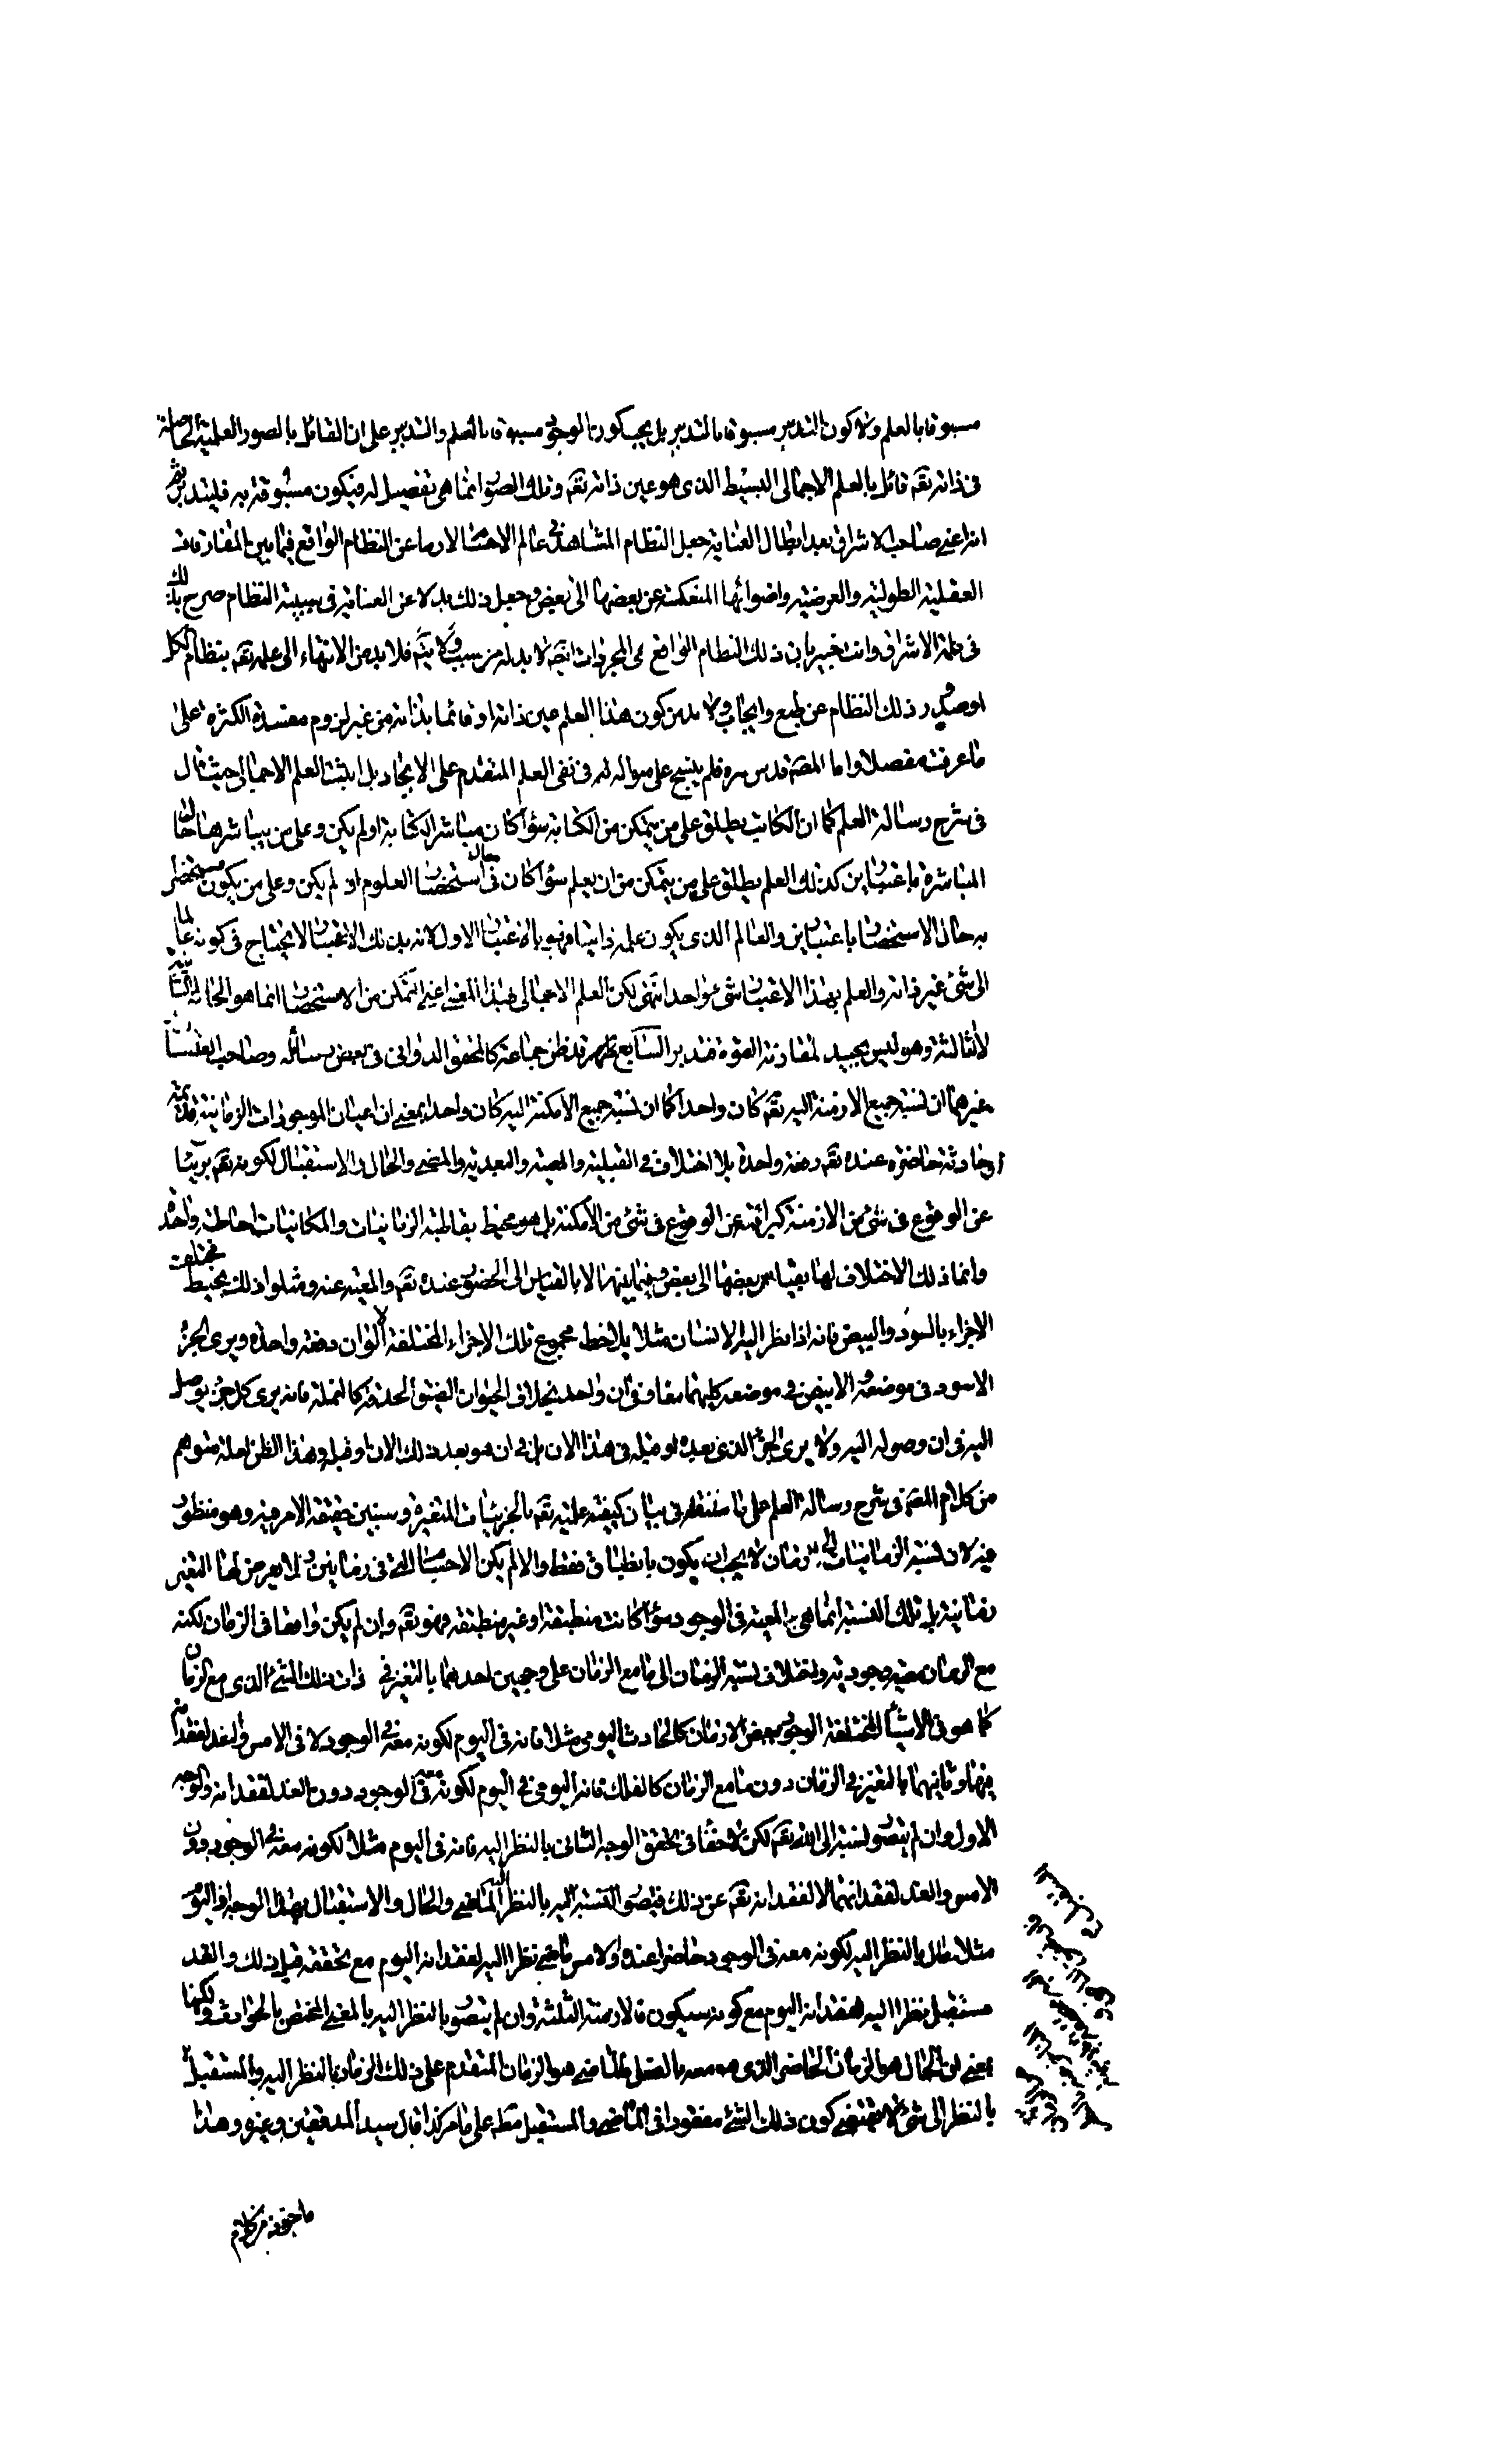 مسبوقا بالعلم ولا كون التدبير مسبوقا بالتدبير بل يجب كون الوجود مسبوقا بالعلم والتدبير على ان القائل بالصور العلمية الحاصلة
فى ذاته تقه قائل بالعلم الاجمالى البسيط الذى هو عين ذاته تقه وتلك الصور انما هى تفصيل له فيكون مسبوقة به فليتدبر
انه اعنى صاحب الاشراق بعد ابطال العناية جعل النظام المشاهد فى عالم الاجسام لازما عن النظام الواقع فيما بين المفارقات
العقلية الطولية والعرضية واضوائها المنعكسة عن بعضها الى بعض وجعل ذلك بدلا عن العناية فى سببية النظام صرح بذلك
فى حكمة الاشراق وانت خبير بان ذلك النظام الواقع فى المجردات ايضه لا بد له من سبب فلا بد من الانتهاء الى علمه تقه بنظام الكل
او صدور ذلك النظام عن طبع وايجاب ولا بد من كون هذا العلم عين ذاته او قائما بذاته من غير لزوم مفسدة الكثرة على
ما عرفت مفصلا واما المصه قدس سره فلم ينسج على منواله فى نفى العلم المتقدم على الايجاد بل اثبت العلم الاجمالى حيث قال
فى شرح رسالة العلم كما ان الكاتب يطلق على من يتمكن من الكتابة سواء كان مباشر الكتابة او لم يكن وعلى من يباشرها حال
المباشرة باعتبارين كذلك العلم يطلق على من يتمكن من ان يعلم سواء كان فى حال استحضار العلوم او لم يكن وعلى من يكون مستحضرا
به حال الاستحضار باعتبارين والعالم الذى يكون علمه ذاتيا فهو بالاعتبار الاول لانه بذلك الاعتبار لا يحتاج فى كونه عالما
الى شئ غير ذاته والعلم بهذا الاعتبار شئ واحد انتهى لكن العلم الاجمالى بهذا المعنى اعنى التمكن من الاستحضار انما هو الحالة الثانية
لا الثالثة وهو ليس بجيد لمقارنة القوة فتدبر السابع قد ظن جماعة كالمحقق الدوانى فى بعض رسائله وصاحب القبسات
وغيرهما ان نسبة جميع الازمنة اليه تقه كان واحد كما ان نسبة جميع الامكنة اليه كان واحد بمعنى ان اعيان الموجودات الزمانية قديمة
او حادثة حاضرة عنده تقه دفعة واحدة بلا اختلاف فى القبلية والمعية والبعدية والمضى والحال والاستقبال لكونه تقه بريئا
عن الوقوع فى شئ من الازمنة كبرائته عن الوقوع فى شئ من الامكنة بل هو محيط بقاطبة الزمانيات والمكانيات احاطة واحدة
وانما ذلك الاختلاف لها بقياس بعضها الى بعض فيما بينها لا بالقياس الى الحضور عنده تقه والمعية عنه ومثلوا ذلك بخيط مختلف
الاجزاء بالسود والبيض فانه اذا نظر اليه الانسان مثلا يلاحظ مجموع تلك الاجزاء المختلفة الالوان دفعة واحدة ويرى الجزء
الاسود فى موضعه والابيض فى موضعه كليهما معا فى ان واحد بخلاف الحيوان الضيق الحدقة كالنملة فانه يرى كل جزء يوصل
اليه فى ان وصوله اليه ولا يرى الجزء الذى بعده او قبله فى هذا الان بل فى ان هو بعد ذلك الان او قبله وهذا الظن لعله متوهم
من كلام المصه فى شرح رسالة العلم على ما سننقله فى بيان كيفية علمه تقه بالجزئيات المتغيرة وسنبين حقيقة الامر فيه وهو منظور
فيه لان نسبة الزمانيات الى الزمان لا يجب ان يكون بانطباق فقط والا لم يكن الاجسام التى فى زمانين ولما يعرض لها التغير
زمانية بل تلك النسبة انما هى بالمعية فى الوجود سواء كانت منطبقة او غير منطبقة فهو تقه وان لم يكن واقعا فى الزمان لكنه
مع الزمان معية وجودية واختلاف نسبة الزمان الى ما مع الزمان على وجهين احدهما بالتغير فى ذات ذلك الشئ الذى مع الزمان
كما هو فى الاشياء المختلفة الوجود ببعض الازمان كالحادث اليومى مثلا فانه فى اليوم لكونه معه فى الوجود لا فى الامس والغد لفقدانه
فيهما وثانيهما بالتغير فى الزمان دون ما مع الزمان كالفلك فانه اليومى فى اليوم لكونه معه فى الوجود دون الغد لفقدانه والوجه
الاول وان لم يتصور نسبته الى الله تقه لكن لا خفاء فى تحقق الوجه الثانى بالنظر اليه فانه فى اليوم مثلا لكونه معه فى الوجود دون
الامس والغد لفقدانهما لا لفقدانه تقه عن ذلك فيتصور النسبة اليه بالنظر الى الماضى والحال والاستقبال بهذا الوجه فاليوم
مثلا حال بالنظر اليه لكونه معه فى الوجود حاضرا عنده والامس ماضى نظرا اليه لفقدانه اليوم مع تحققه قبل ذلك والغد
مستقبل نظرا اليه لفقدانه اليوم مع كونه سيكون فالازمنة الثلثة وان لم يتصور بالنظر اليه بالمعنى المختص بالحوادث ولكنها
بمعنى ان الحال هو الزمان الحاضر الذى هو معه بالفعل والماضى هو الزمان المتقدم على ذلك الزمان بالنظر اليه والمستقبل
بالنظر الى شئ لا يقتضى كون ذلك الشئ مفقودا فى الماضى والمستقبل مطه على ما مر كذا قال سيد المدققين وغيره وهذا